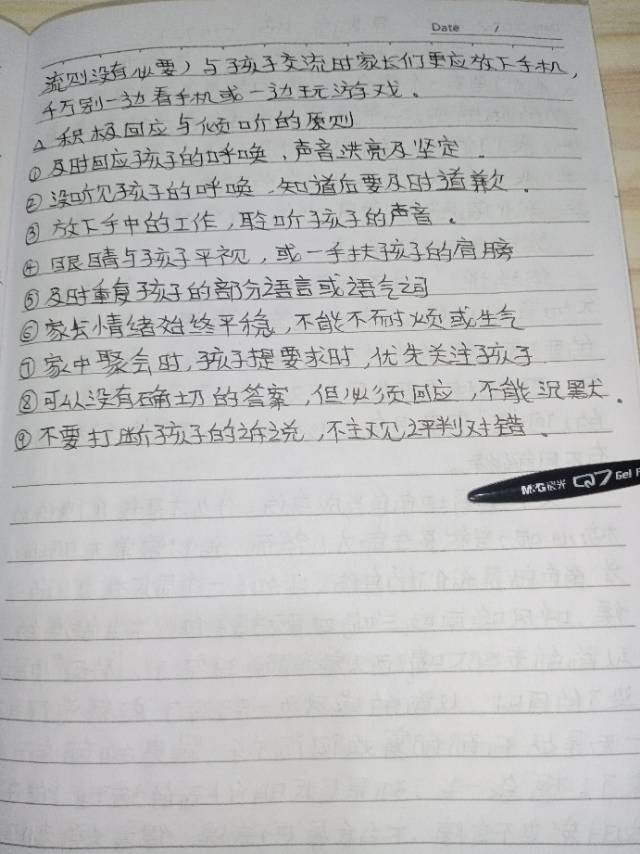 Date /
流则没有必要)与孩子交流时家长们更应放下手机,
千万别一边看手机或一边玩游戏。
△积极回应与倾听的原则
①及时回应孩子的呼唤,声音洪亮及坚定。
②没听见孩子的呼唤,知道后要及时道歉。
③放下手中的工作,聆听孩子的声音。
④眼睛与孩子平视,或一手扶孩子的肩膀
⑤及时重复孩子的部分语言或语气词
⑥家长情绪始终平稳,不能不耐烦或生气
⑦家中聚会时,孩子提要求时,优先关注孩子
⑧可以没有确切的答案,但必须回应,不能沉默。
⑨不要打断孩子的诉说,不主观评判对错。
M&G晨光 Q7 Gel